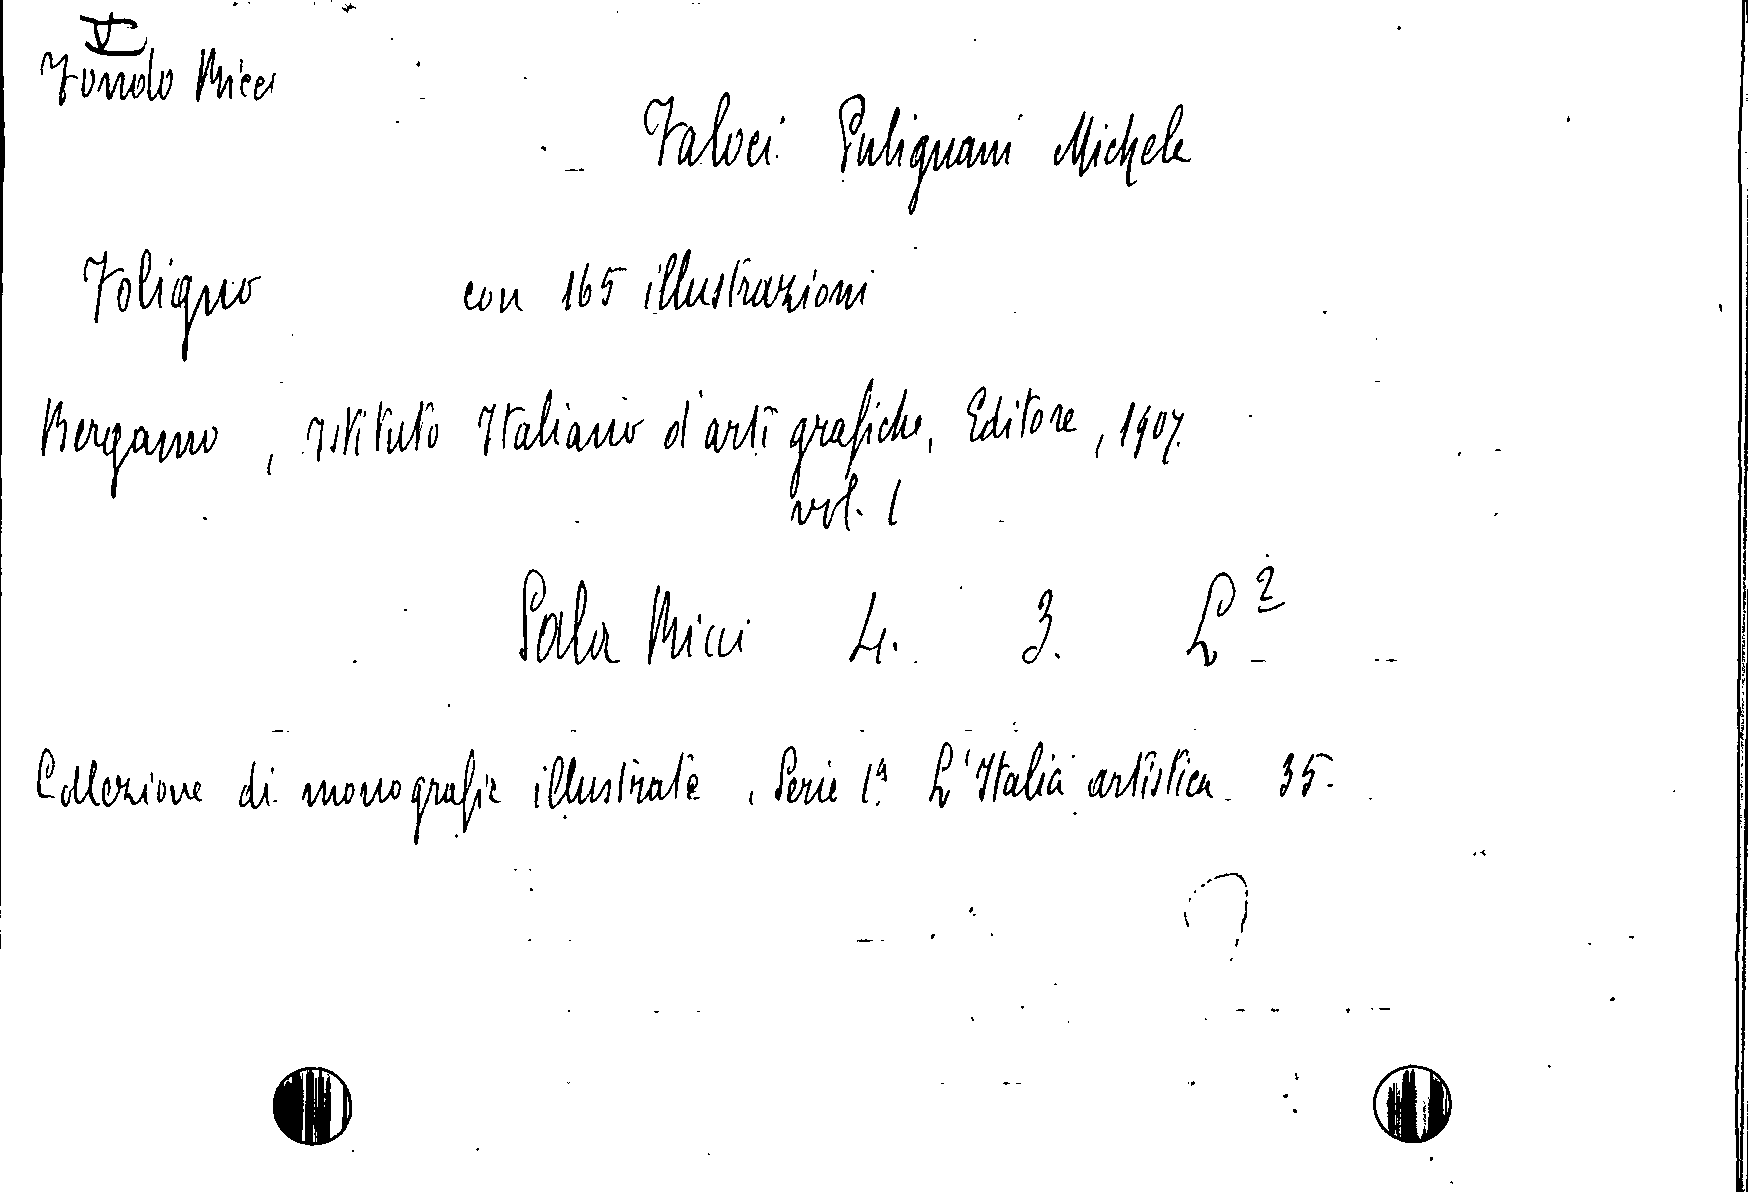 V
Fondo Ricci
Faloci Pulignani Michele
Foligno con 165 illustrazioni
Bergamo, Istituto Italiano d'arti grafiche, Editore, 1907.
vol. 1
Sala Ricci 4. 3. L²
Collezione di monografie illustrate, Serie 1ª L'Italia artistica 35.